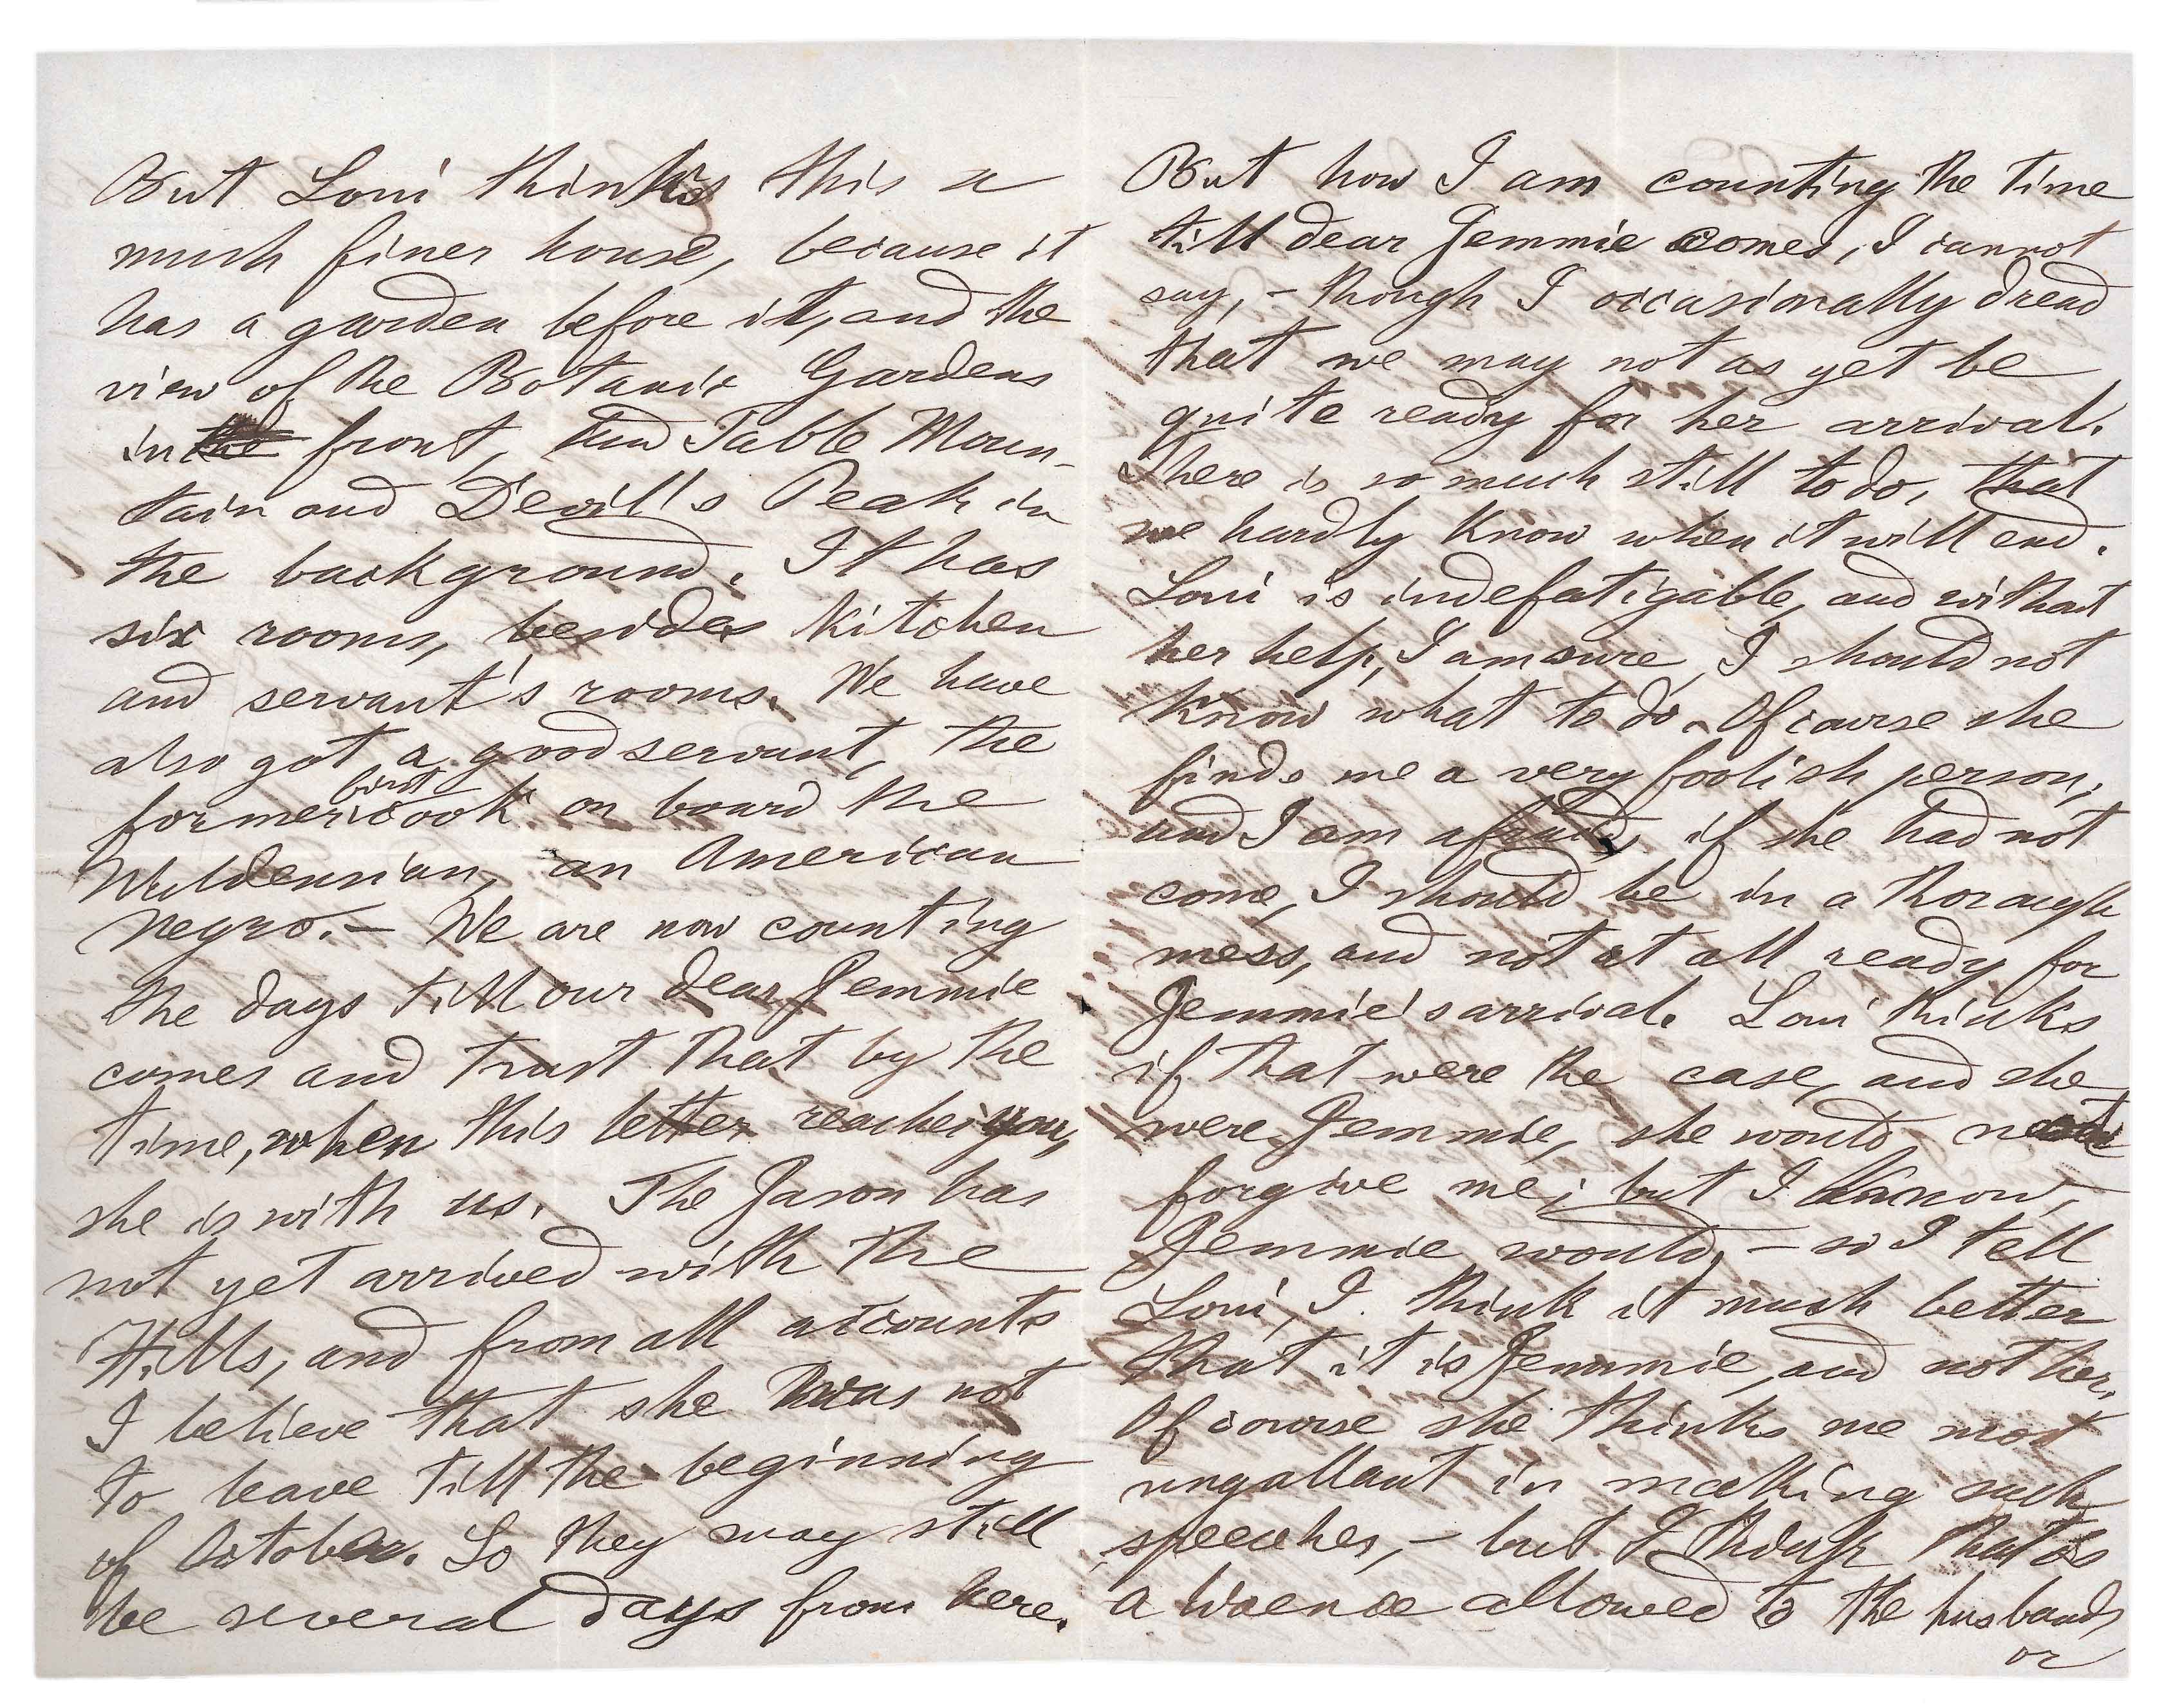 But Loui thinks this a
much finer house, because it
has a garden before it, and the
view of the Botanic Gardens
in the front, and Table Moun-
tain and Devil's Peak in
the background. It has
six rooms, besides kitchen
and servant's rooms. We have
also got a good servant, the
former first cook on board the
an American
Negro. — We are now counting
the days till our dear Jemmie
comes and trust that by the
time, when this letter reaches you,
she is with us. The Jason has
not yet arrived with the
Hills, and from all accounts
I believe that she was not
to leave till the beginning
of October. So they may still
be several days from here.
But how I am counting the time
till dear Jemmie comes, I cannot
say, — though I occasionally dread
that we may not as yet be
quite ready for her arrival.
There is so much still to do, that
we hardly know when it will end.
Loui is indefatigable, and without
her help, I am sure, I should not
know what to do. Of course she
finds me a very foolish person,
and I am afraid, if she had not
come, I should be in a thorough
mess, and not at all ready for
Jemmie's arrival. Loui thinks
if that were the case, and she
were Jemmie, she would not
forgive me; but I know,
Jemmie would, — so I tell
Loui, I think it much better
that it is Jemmie, and not her.
Of course she thinks me most
ungallant in making such
speeches, — but I think that is
a licence allowed to the husbands
or